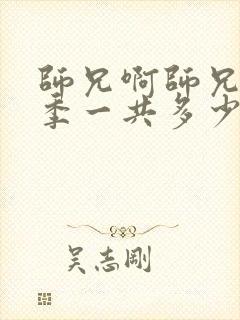 師兄啊師兄
季一共多少
吴志剛